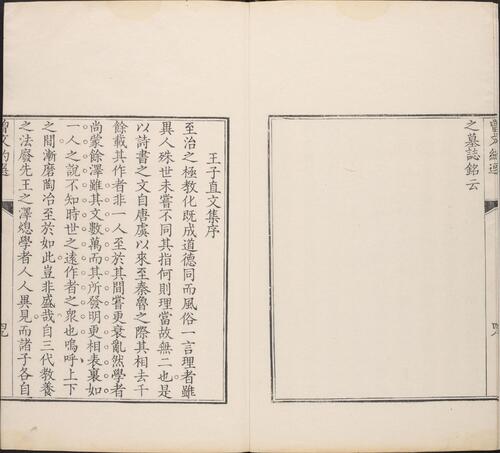 曾文約選
之墓誌銘云
四八
王子直文集序
至治之極教化既成道德同而風俗一言理者雖
異人殊世未嘗不同其指何則理當故無二也是
以詩書之文自唐虞以來至秦魯之際其相去千
餘載其作者非一人至於其間嘗更衰亂然學者
尚蒙餘澤雖其文數萬而其所發明更相表裏如
一人之說不知時世之遠作者之衆也嗚呼上下
之間漸磨陶冶至於如此豈非盛哉自三代教養
之法廢先王之澤熄學者人人異見而諸子各自
曾文約選
四九